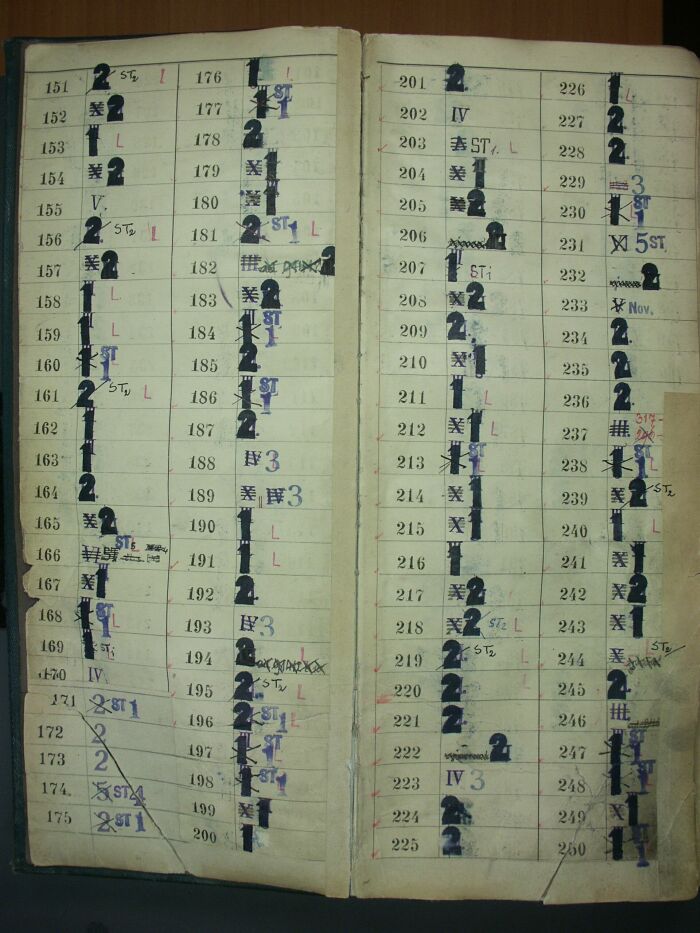 151 2 ST2 L
152 X 2
153 1 L
154 X 2
155 V.
156 2. ST2 L
157 X 2
158 1 L
159 1 L
160 1 ST 1
161 2 ST2 L
162 1
163 1
164 2.
165 X 2
166 VI ST ST5
167 X 1
168 1 ST 1 L
169 1 ST1
170 IV
171 2 ST 1
172 2
173 2
174. 5 ST 4
175 2 ST 1
176 1 L
177 1 ST 1
178 2
179 X 1
180 X 1
181 2 ST 1 L
182 III 2
183 X 2
184 1 ST 1
185 2.
186 1 ST 1
187 2.
188 IV 3
189 X IV 3
190 1 L
191 1 L
192 2
193 IV 3
194 2
195 2. ST2 L
196 2 ST 1 L
197 1 ST 1 L
198 1 ST 1
199 X 1
200 1
201 2.
202 IV
203 X ST1. L
204 X 1
205 X 2
206 2
207 1 ST1
208 X 2
209 2.
210 X 1
211 1 L
212 X 1 L
213 1 ST 1 L
214 X 1
215 X 1
216 1
217 X 2
218 X 2 ST2 L
219 2. ST2 L
220 2.
221 2.
222 2
223 IV 3
224 2
225 2
226 1 L
227 2.
228 2.
229 3
230 1 ST 1
231 XI 5 ST
232 2
233 V Nov.
234 2.
235 2
236 2.
237 III. 317-
238 1 ST 1 L
239 X 2 ST2
240 1 L
241 X 1
242 X 2
243 X 1
244 X ST2 L
245 2.
246 III
247 1 ST 1
248 1 ST 1
249 X 1
250 1 ST 1